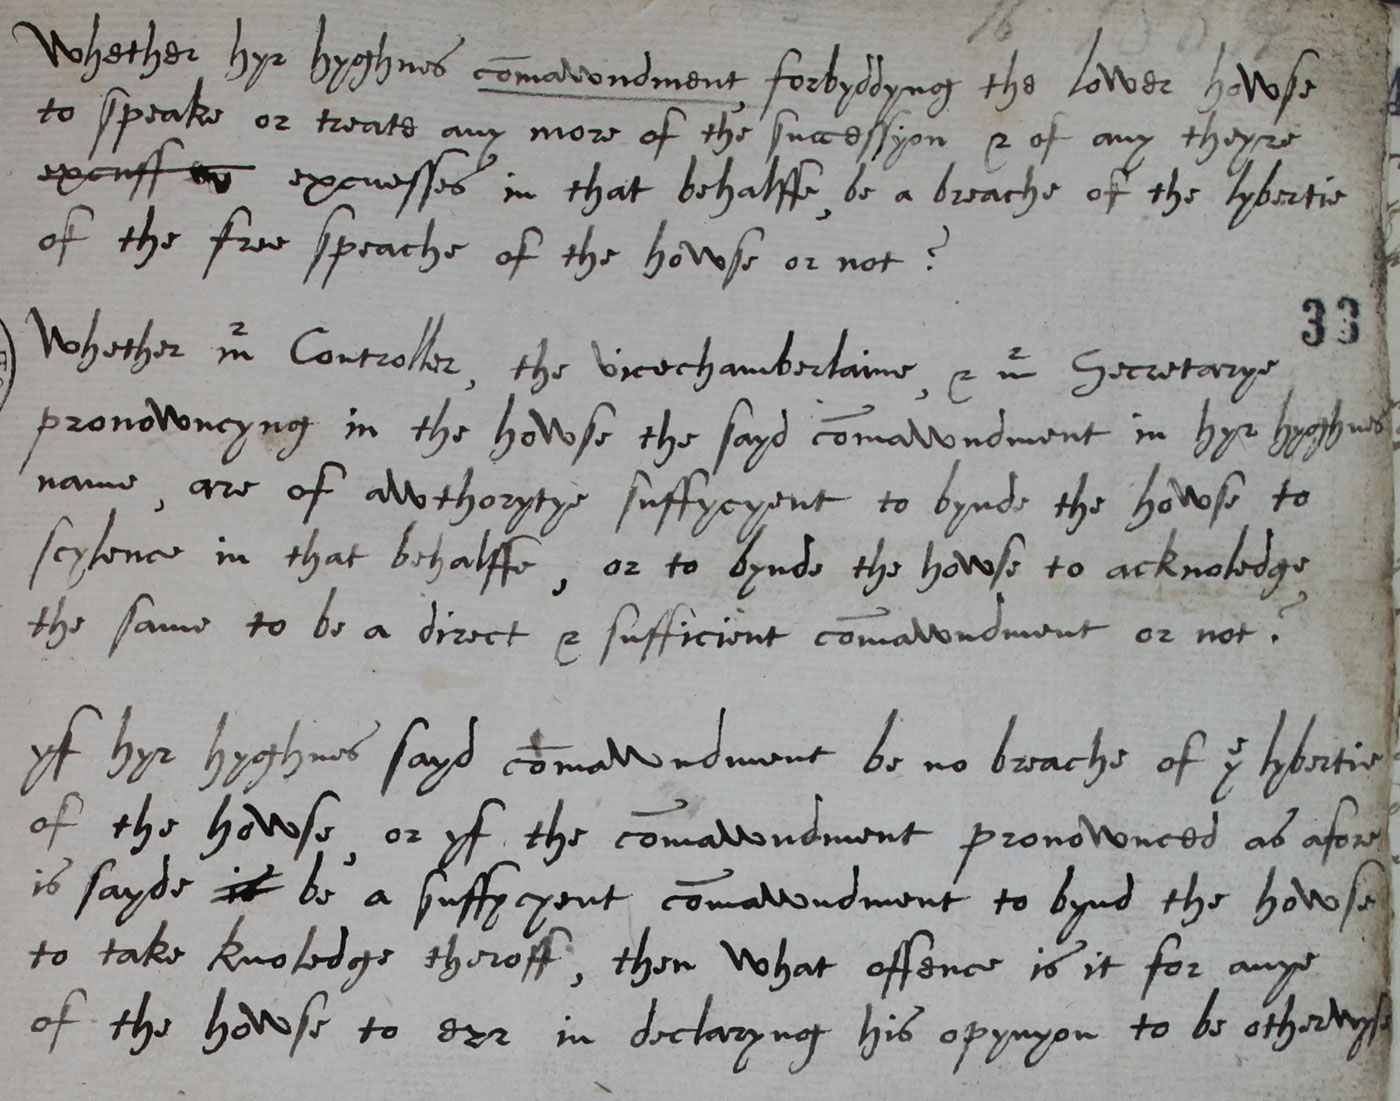 Whether hyr hyghnes com̄awndment, forbyddyng the lower howse
to speake or treate any more of the successyon & of any theyre
excuss excusses in that behalffe, be a breache of the lybertie
of the free speache of the howse or not?
33
Whether mr Controller, the vicechamberlaine, & mr Secretarye
pronowncyng in the howse the sayd com̄awndment in hyr hyghnes
name, are of awthorytye suffycyent to bynde the howse to
scylence in that behalffe, or to bynde the howse to acknoledge
the same to be a direct & sufficient com̄awndment or not?
yf hyr hyghnes sayd com̄awndment be no breache of ye lybertie
of the howse, or yf the com̄awndment pronownced as afore
is sayde is be a suffycyent com̄awndment to bynd the howse
to take knoledge theroff, then what offence is it for anye
of the howse to err in declaryng his opynyon to be otherwyse